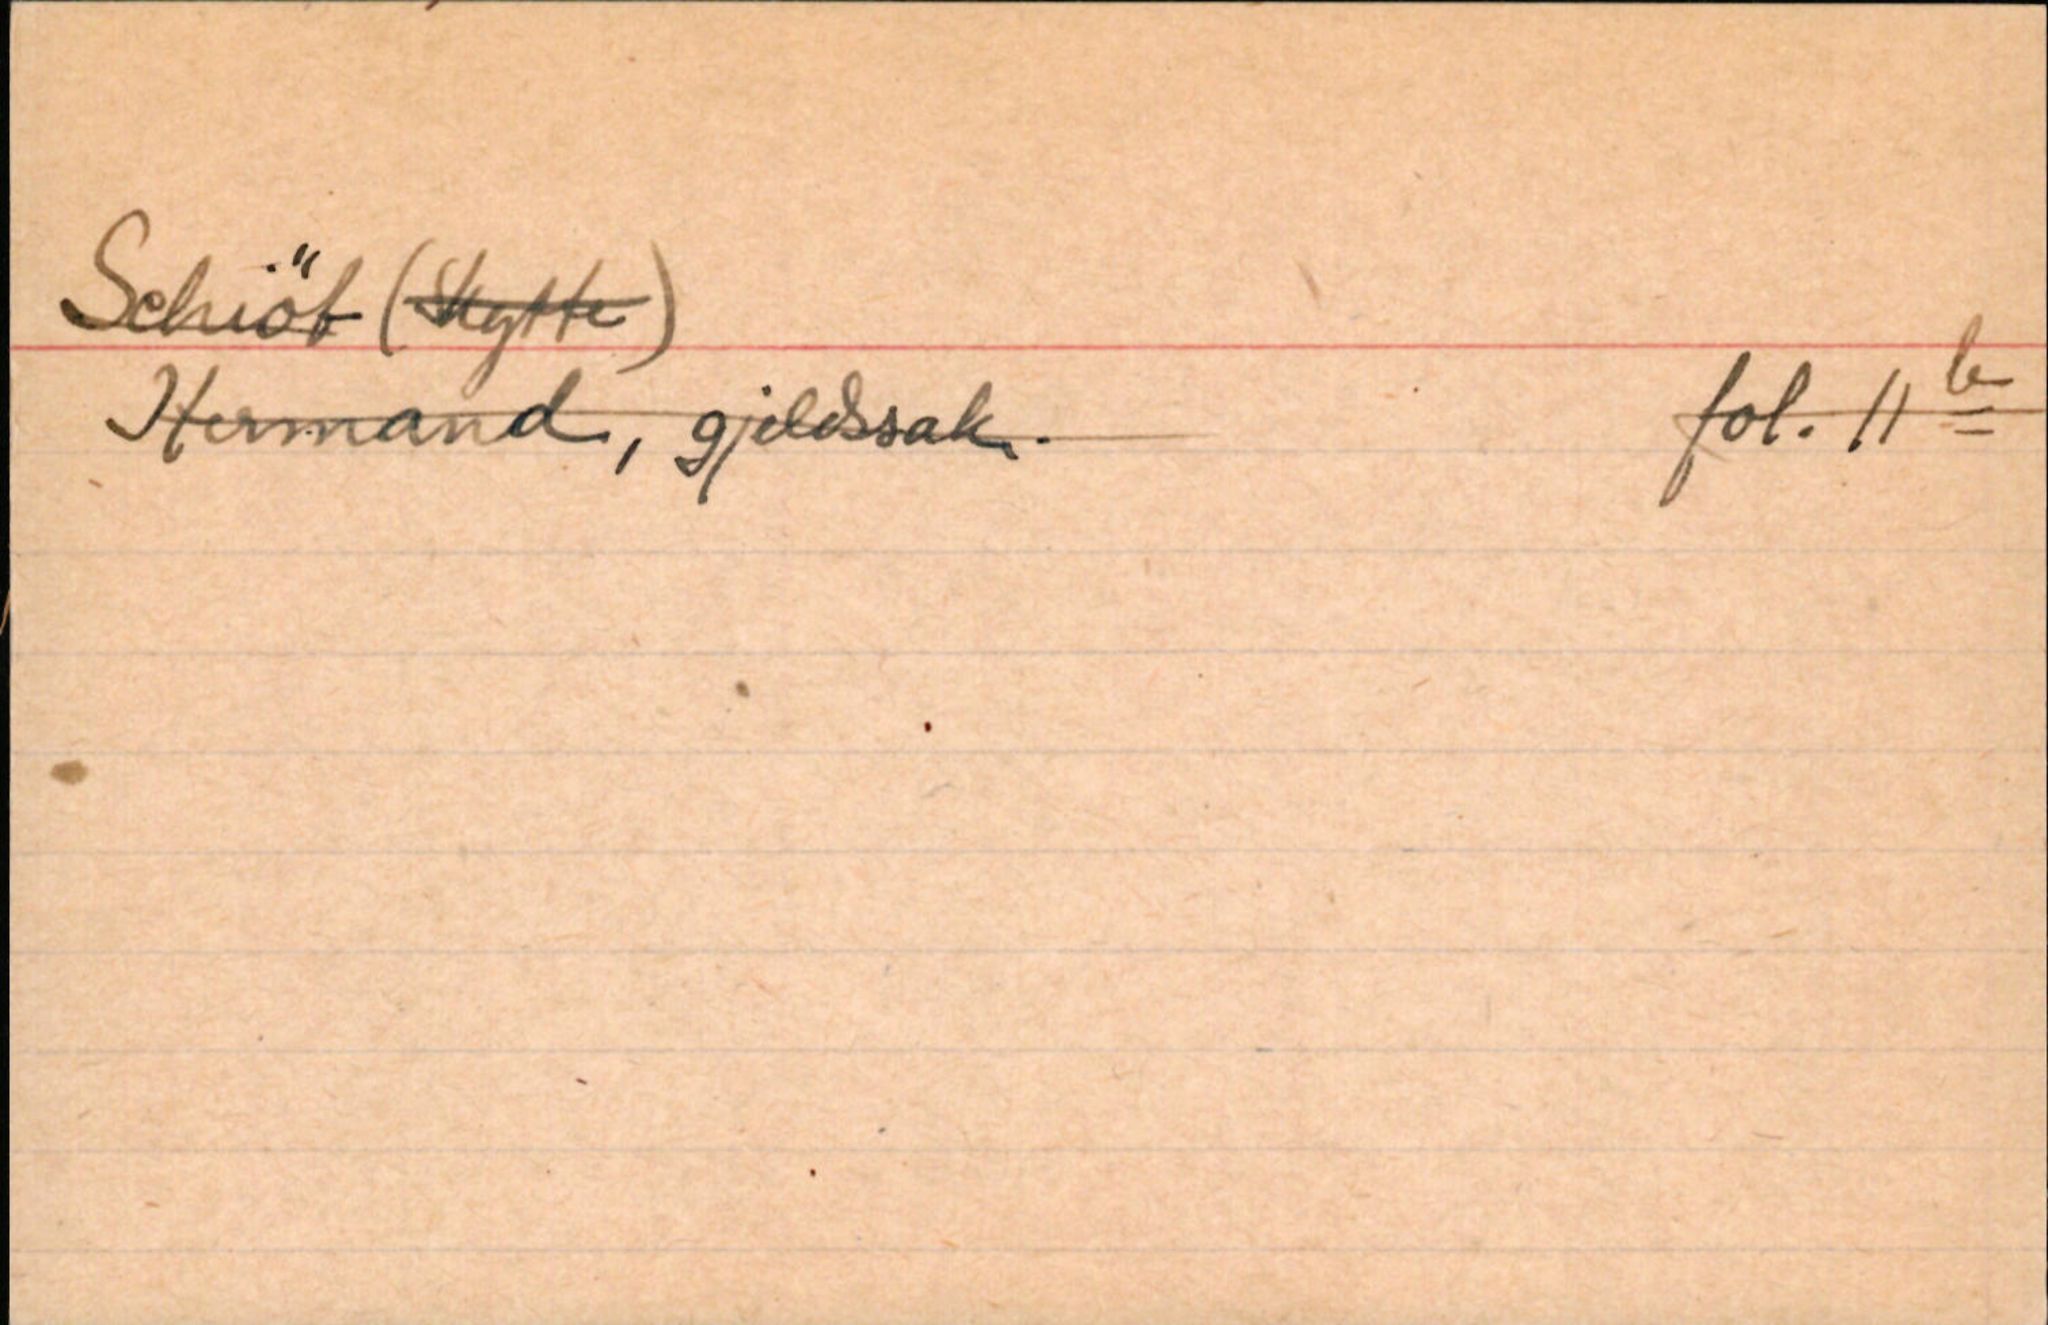 Schiöt (Skytte)
Hermand, gjeldssak. fol. 11 b